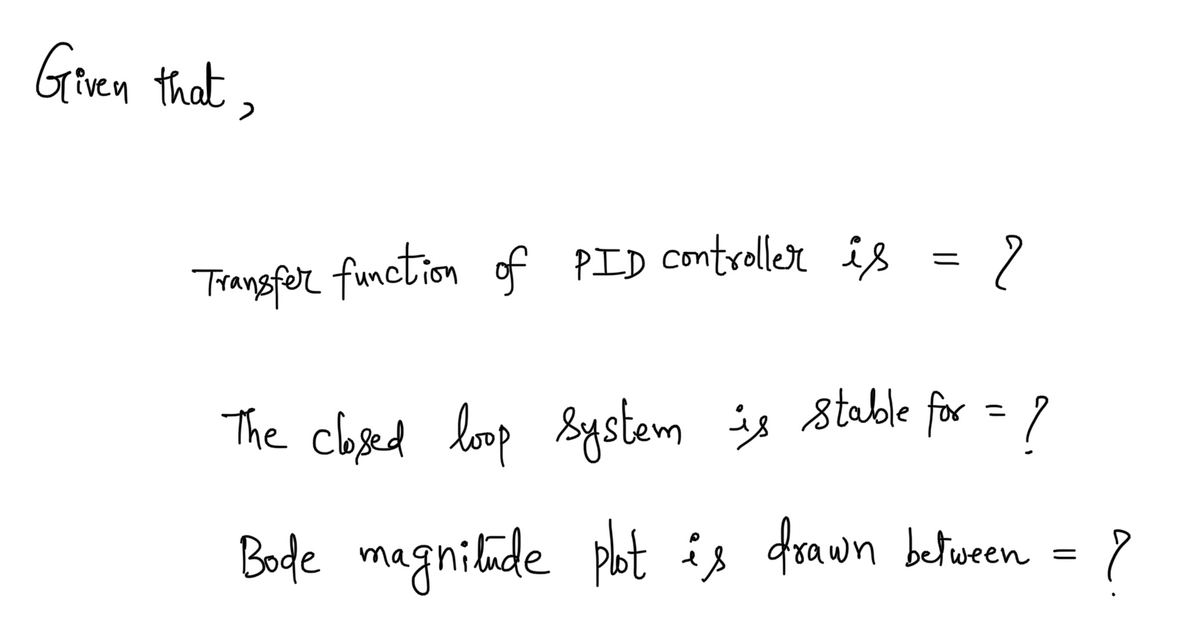 Given that,
Transfer function of PID controller is = ?
The closed loop system is stable for = ?
Bode magnitude plot is drawn between = ?